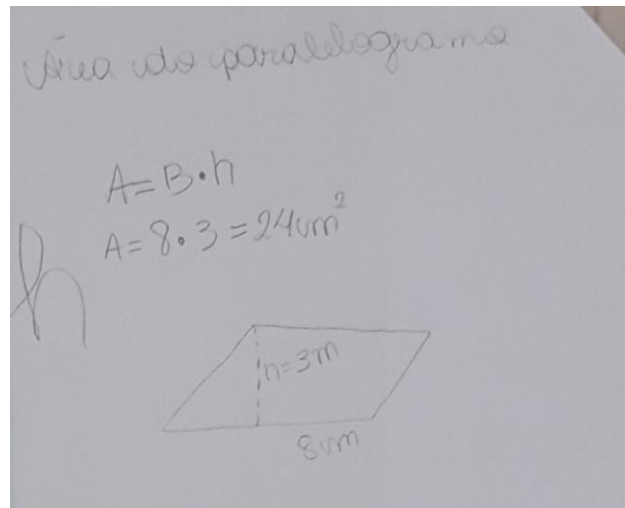 Área do paralelogramo
A=B•h
A=8•3=24cm²
h
h=3m
8cm